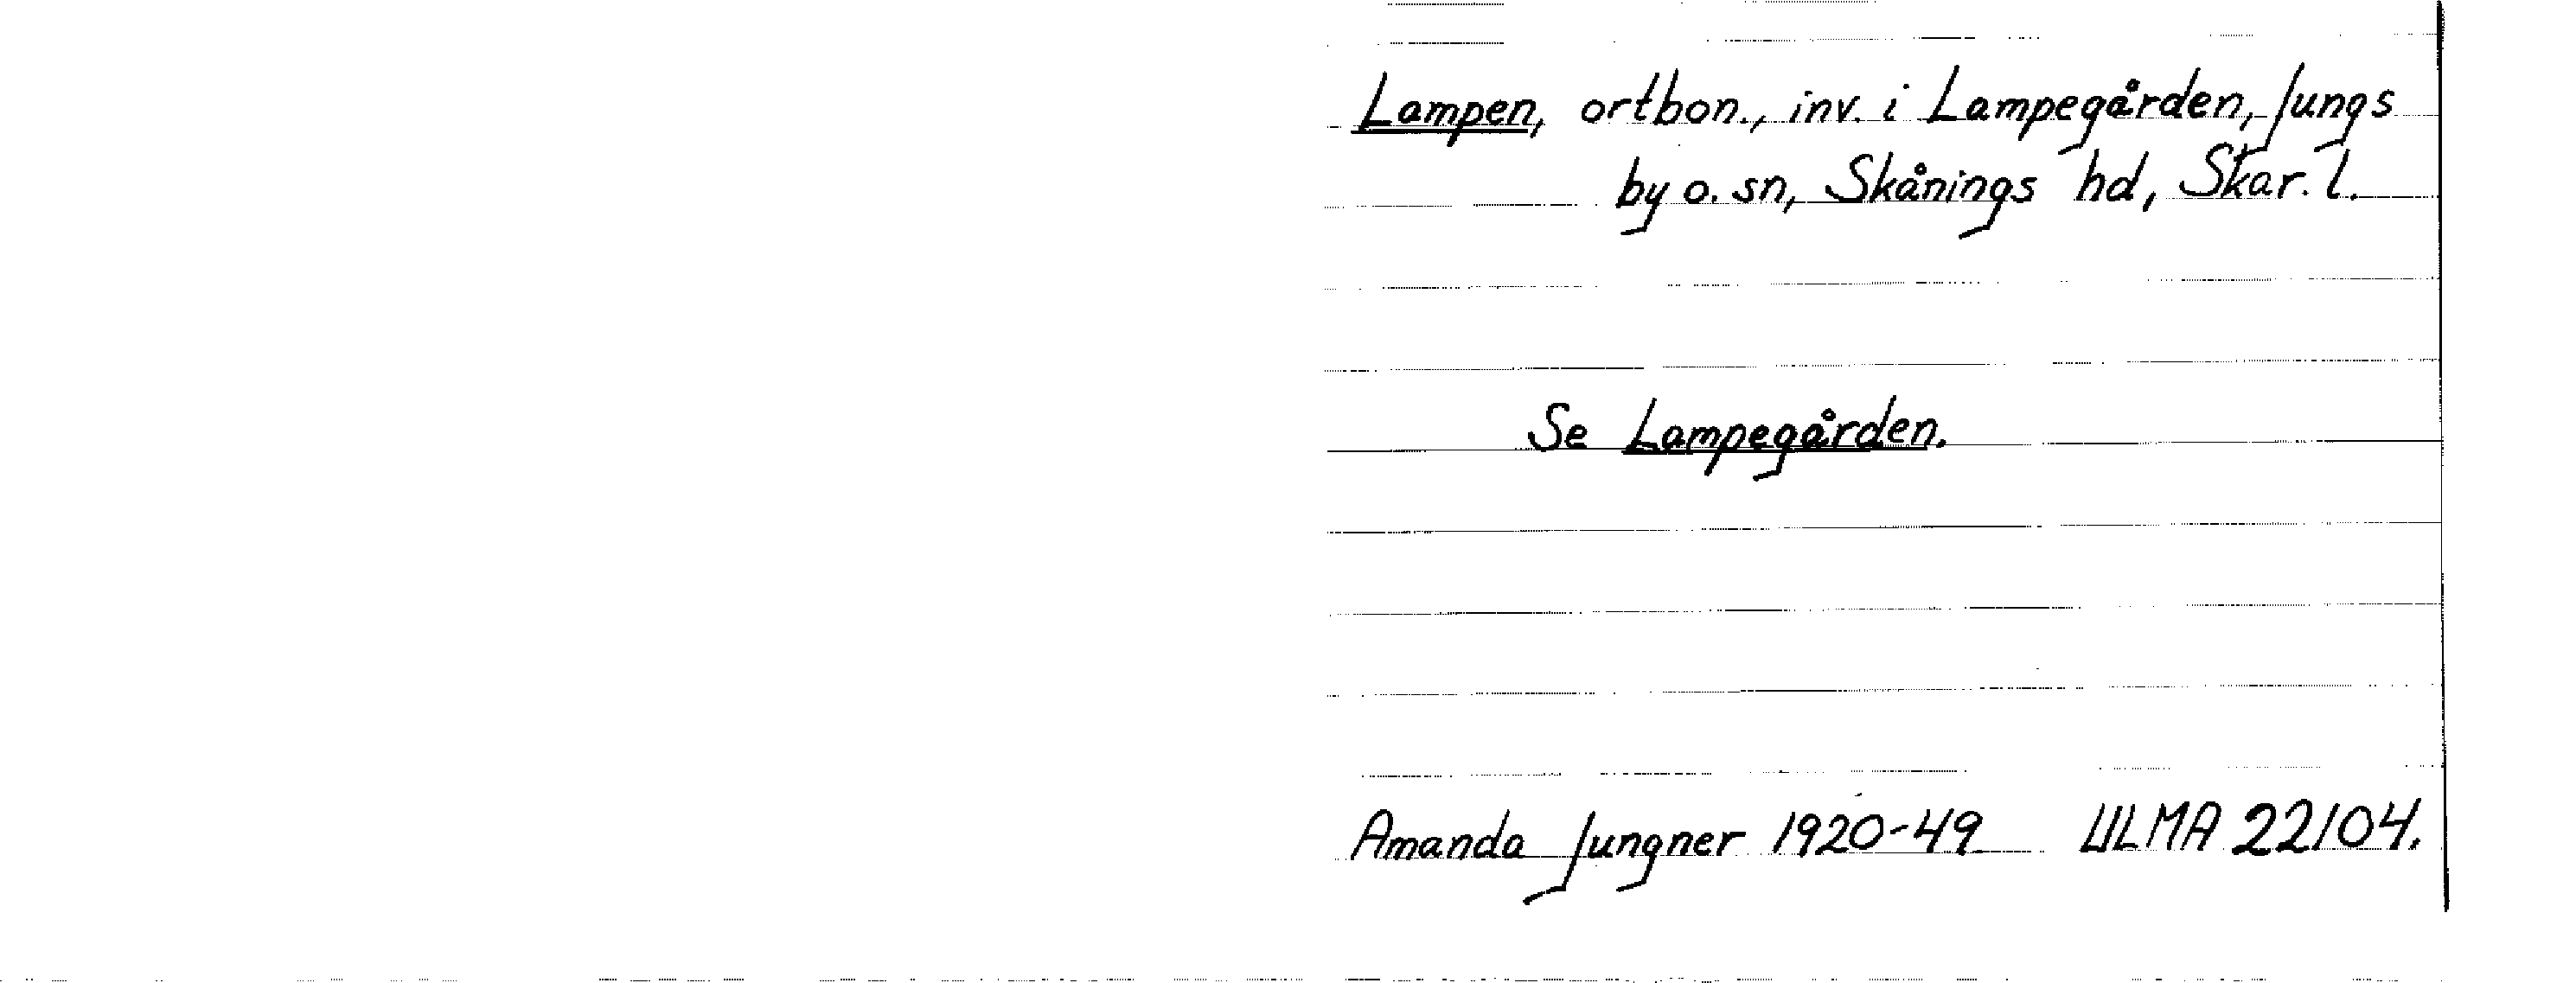 Lampen, ortbon., inv. i Lampegården, Jungs
by o. sn, Skånings hd, Skar. l.
Se Lampegården.
Amanda Jungner 1920-49 ULMA 22104.